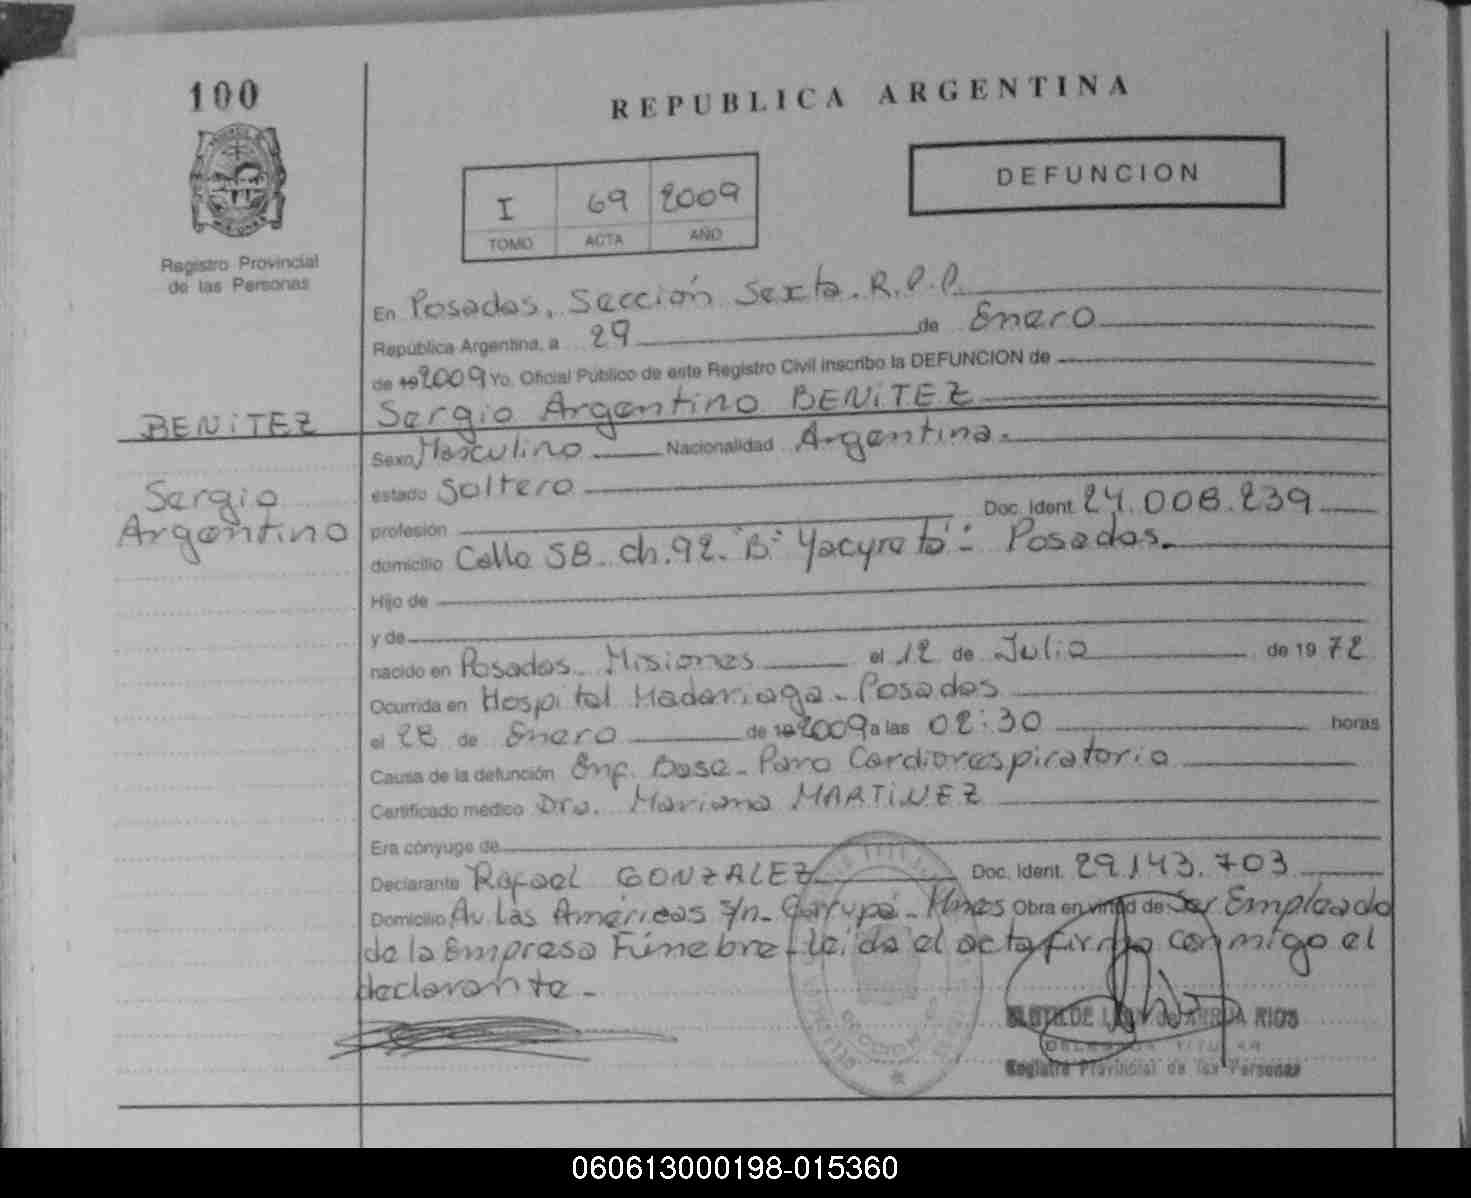 100
REPUBLICA ARGENTINA
DEFUNCION
I 69 2009
TOMO ACTA AÑO
Registro Provincial
de las Personas
En Posadas, Sección Sexta. R.P.P.
República Argentina, a 29 de Enero
de 19 2009 Yo, Oficial Público de este Registro Civil inscribo la DEFUNCION de
BENiTEZ
Sergio Argentino BENiTEZ
Sexo Masculino Nacionalidad Argentina.
Sergio
Argentino
estado Soltero
profesión Doc. Ident. 24.008.239
domicilio Calle 58 - ch. 92 - "B" Yacyreta - Posadas.
Hijo de
y de
nacido en Posadas - Misiones el 12 de Julio de 19 72
Ocurrida en Hospital Madariaga - Posadas
el 28 de Enero de 19 2009 a las 02:30 horas
Causa de la defunción Enf. Base - Paro Cardiorespiratorio
Certificado médico Dra. Mariana MARTiNEZ
Era cónyuge de
Declarante Rafael GONZALEZ Doc. Ident. 29.143.703
Domicilio Av. Las Américas s/n - Garupá - Mnes Obra en virtud de Ser Empleado
de la Empresa Fúnebre - leída el acta firma conmigo el
declarante -
RIOS
Registro Provincial de las Personas
060613000198-015360